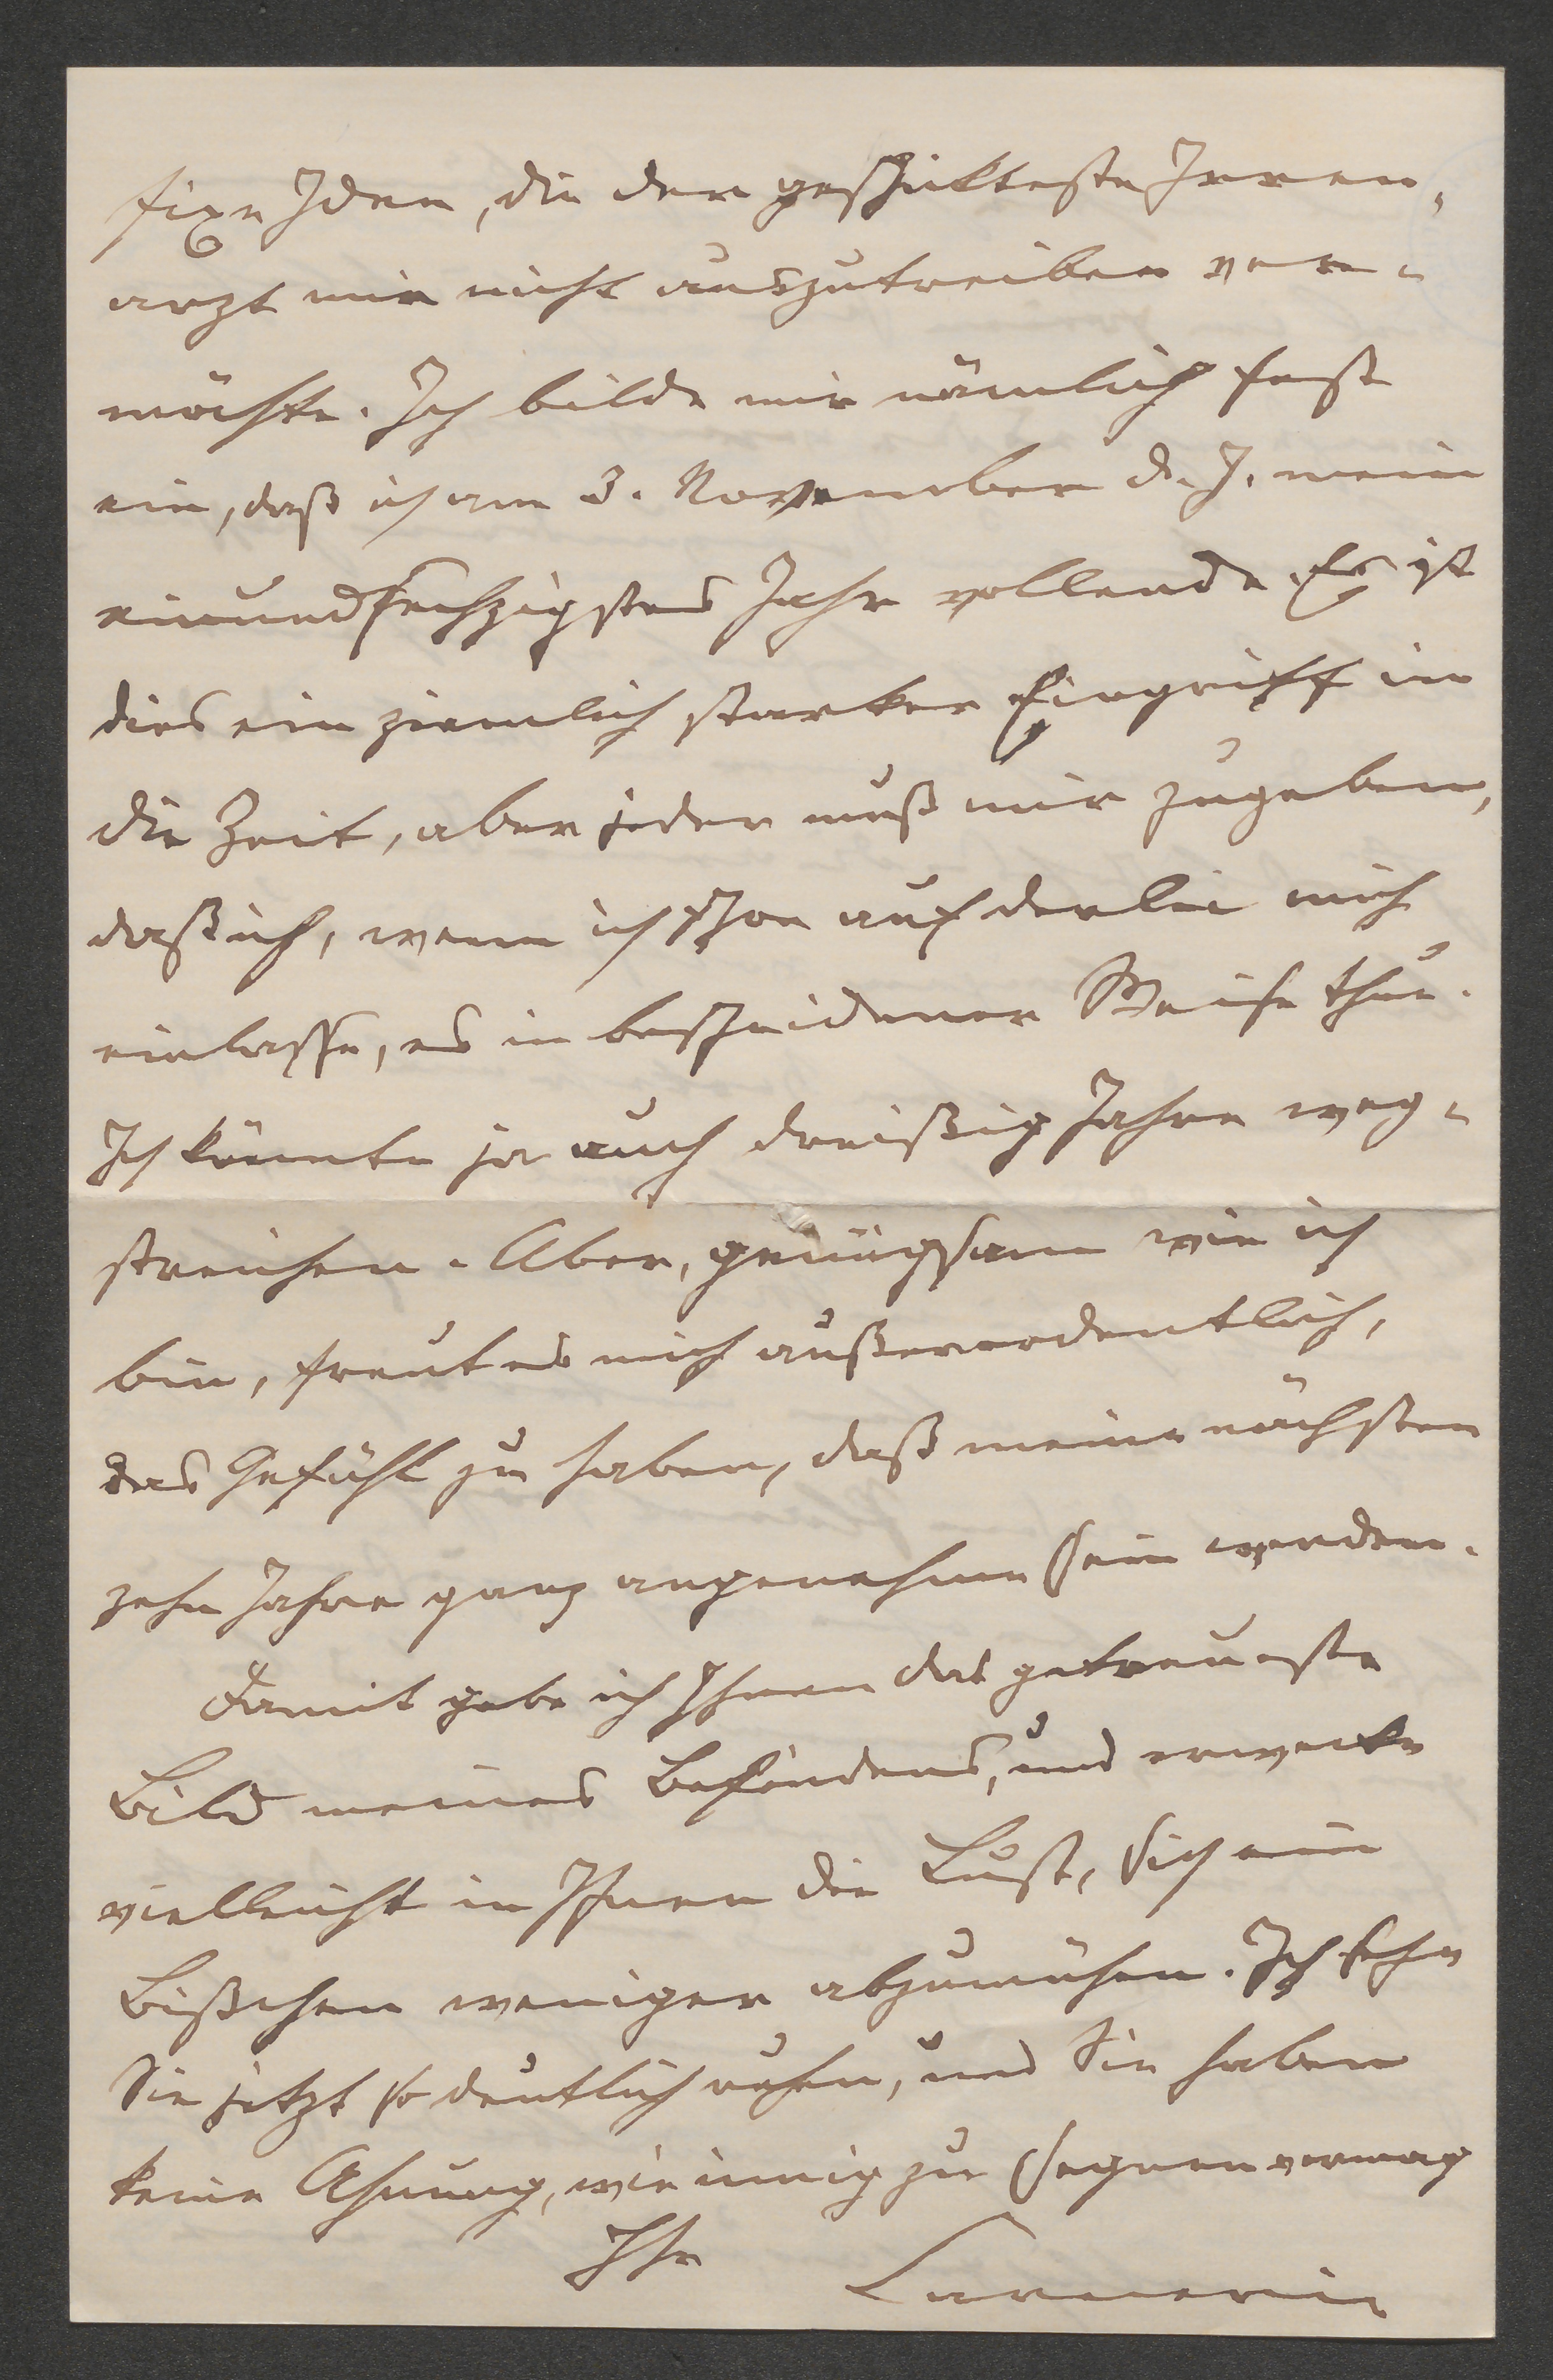 fixe Idee, die der geschickteste Irren-
arzt mir nicht auszutreiben ver-
möchte. Ich bilde mir nämlich fest
ein, daß ich am 3. November d. J. mein
einundsechzigstes Jahr vollende. Es ist
dies ein ziemlich starker Eingriff in
die Zeit, aber jeder muß mir zugeben,
daß ich, wenn ich schon auf derlei mich
einlasse, es in bescheidener Weise thue.
Ich könnte ja auch dreißig Jahre weg-
streichen. Aber, genügsam wie ich
bin, freut es mich außerordentlich,
das Gefühl zu haben, daß meine nächsten
zehn Jahre ganz angenehm sein werden.
Damit gebe ich Ihnen das getreueste
Bild meines Befindens, und erwecke
vielleicht in Ihnen die Lust, sich ein
Bißchen weniger abzumühen. Ich sehe
Sie jetzt so deutlich ruhen, und Sie haben
keine Ahnung, wie innig zu segnen vermag
Ihr
Carneri